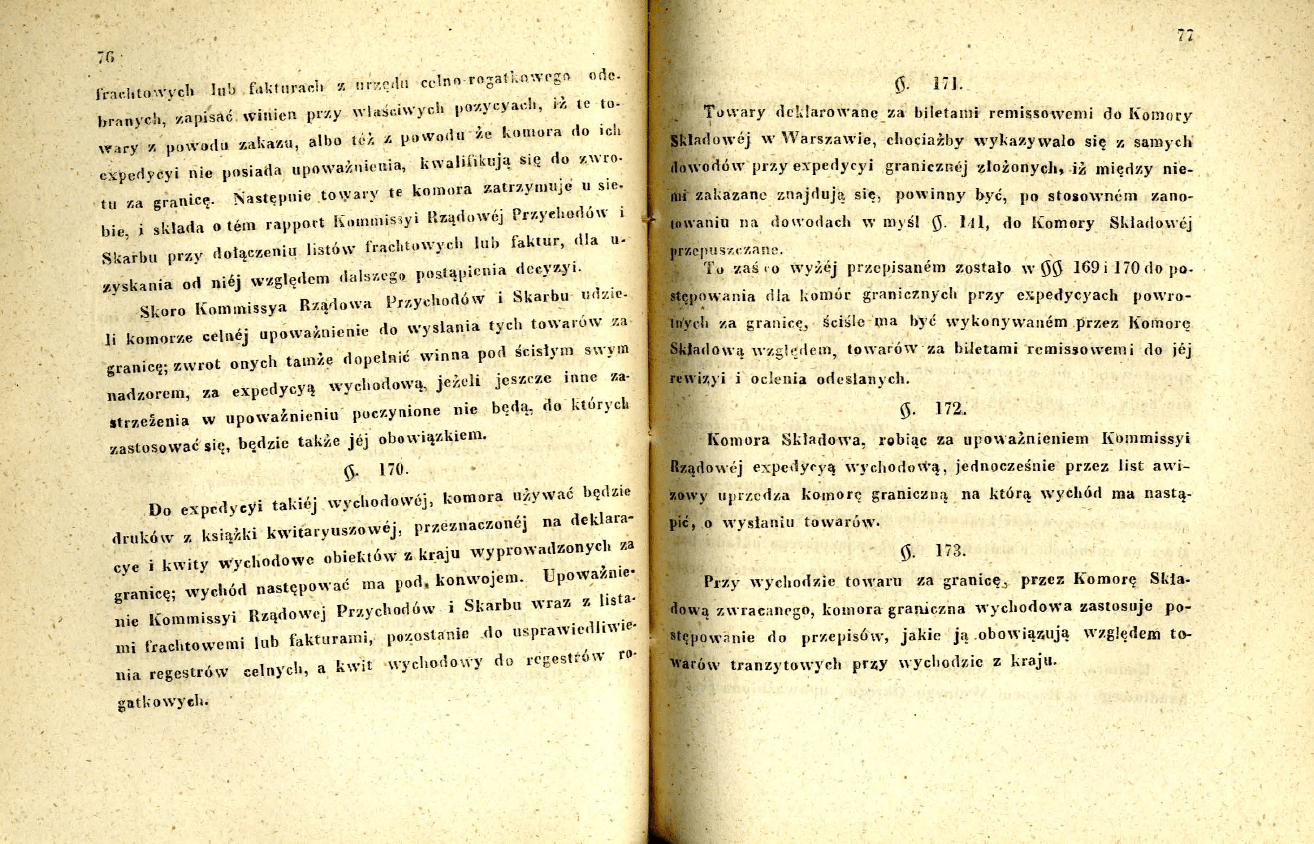 76
frachtowych lub fakturach z urzędu celno-rogatkowego ode-
branych, zapisać winien przy właściwych pozycyach, iż te to-
wary z powodu zakazu, albo téż z powodu że komora do ich
expedycyi nie posiada upoważnienia, kwalifikują się do zwro-
tu za granicę. Następnie towary te komora zatrzymuje u sie-
bie, i składa o tém rapport Kommissyi Rządowéj Przychodów i
Skarbu przy dołączeniu listów frachtowych lub faktur, dla u-
zyskania od niéj względem dalszego postąpienia decyzyi.
Skoro Kommissya Rządowa Przychodów i Skarbu udzie-
li komorze celnéj upoważnienie do wysłania tych towarów za
granicę; zwrot onych tamże dopełnić winna pod ścisłym swym
nadzorem, za expedycyą wychodową, jeżeli jeszcze inne za-
strzeżenia w upoważnieniu poczynione nie będą, do których
zastosować się, będzie także jéj obowiązkiem.
§. 170.
Do expedycyi takiéj wychodowéj, komora używać będzie
druków z książki kwitaryuszowéj, przeznaczonéj na deklara-
cye i kwity wychodowe obiektów z kraju wyprowadzonych za
granicę; wychód następować ma pod konwojem. Upoważnie-
nie Kommissyi Rządowej Przychodów i Skarbu wraz z lista-
mi frachtowemi lub fakturami, pozostanie do usprawiedliwie-
nia regestrów celnych, a kwit wychodowy do regestrów ro-
gatkowych.
77
§. 171.
Towary deklarowane za biletami remissowemi do Komory
Składowéj w Warszawie, chociażby wykazywało się z samych
dowodów przy expedycyi granicznéj złożonych, iż między nie-
mi zakazane znajdują się, powinny być, po stosowném zano-
towaniu na dowodach w myśl §. 141, do Komory Składowéj
przepuszczane.
To zaś co wyżéj przepisaném zostało w §§ 169 i 170 do po-
stępowania dla komór granicznych przy expedycyach powro-
tnych za granicę, ściśle ma być wykonywaném przez Komorę
Składową względem, towarów za biletami remissowemi do jéj
rewizyi i oclenia odesłanych.
§. 172.
Komora Składowa, robiąc za upoważnieniem Kommissyi
Rządowéj expedycyą wychodową, jednocześnie przez list awi-
zowy uprzedza komorę graniczną na którą wychód ma nastą-
pić, o wysłaniu towarów.
§. 173.
Przy wychodzie towaru za granicę, przez Komorę Skła-
dową zwracanego, komora graniczna wychodowa zastosuje po-
stępowanie do przepisów, jakie ją obowiązują względem to-
warów tranzytowych przy wychodzie z kraju.